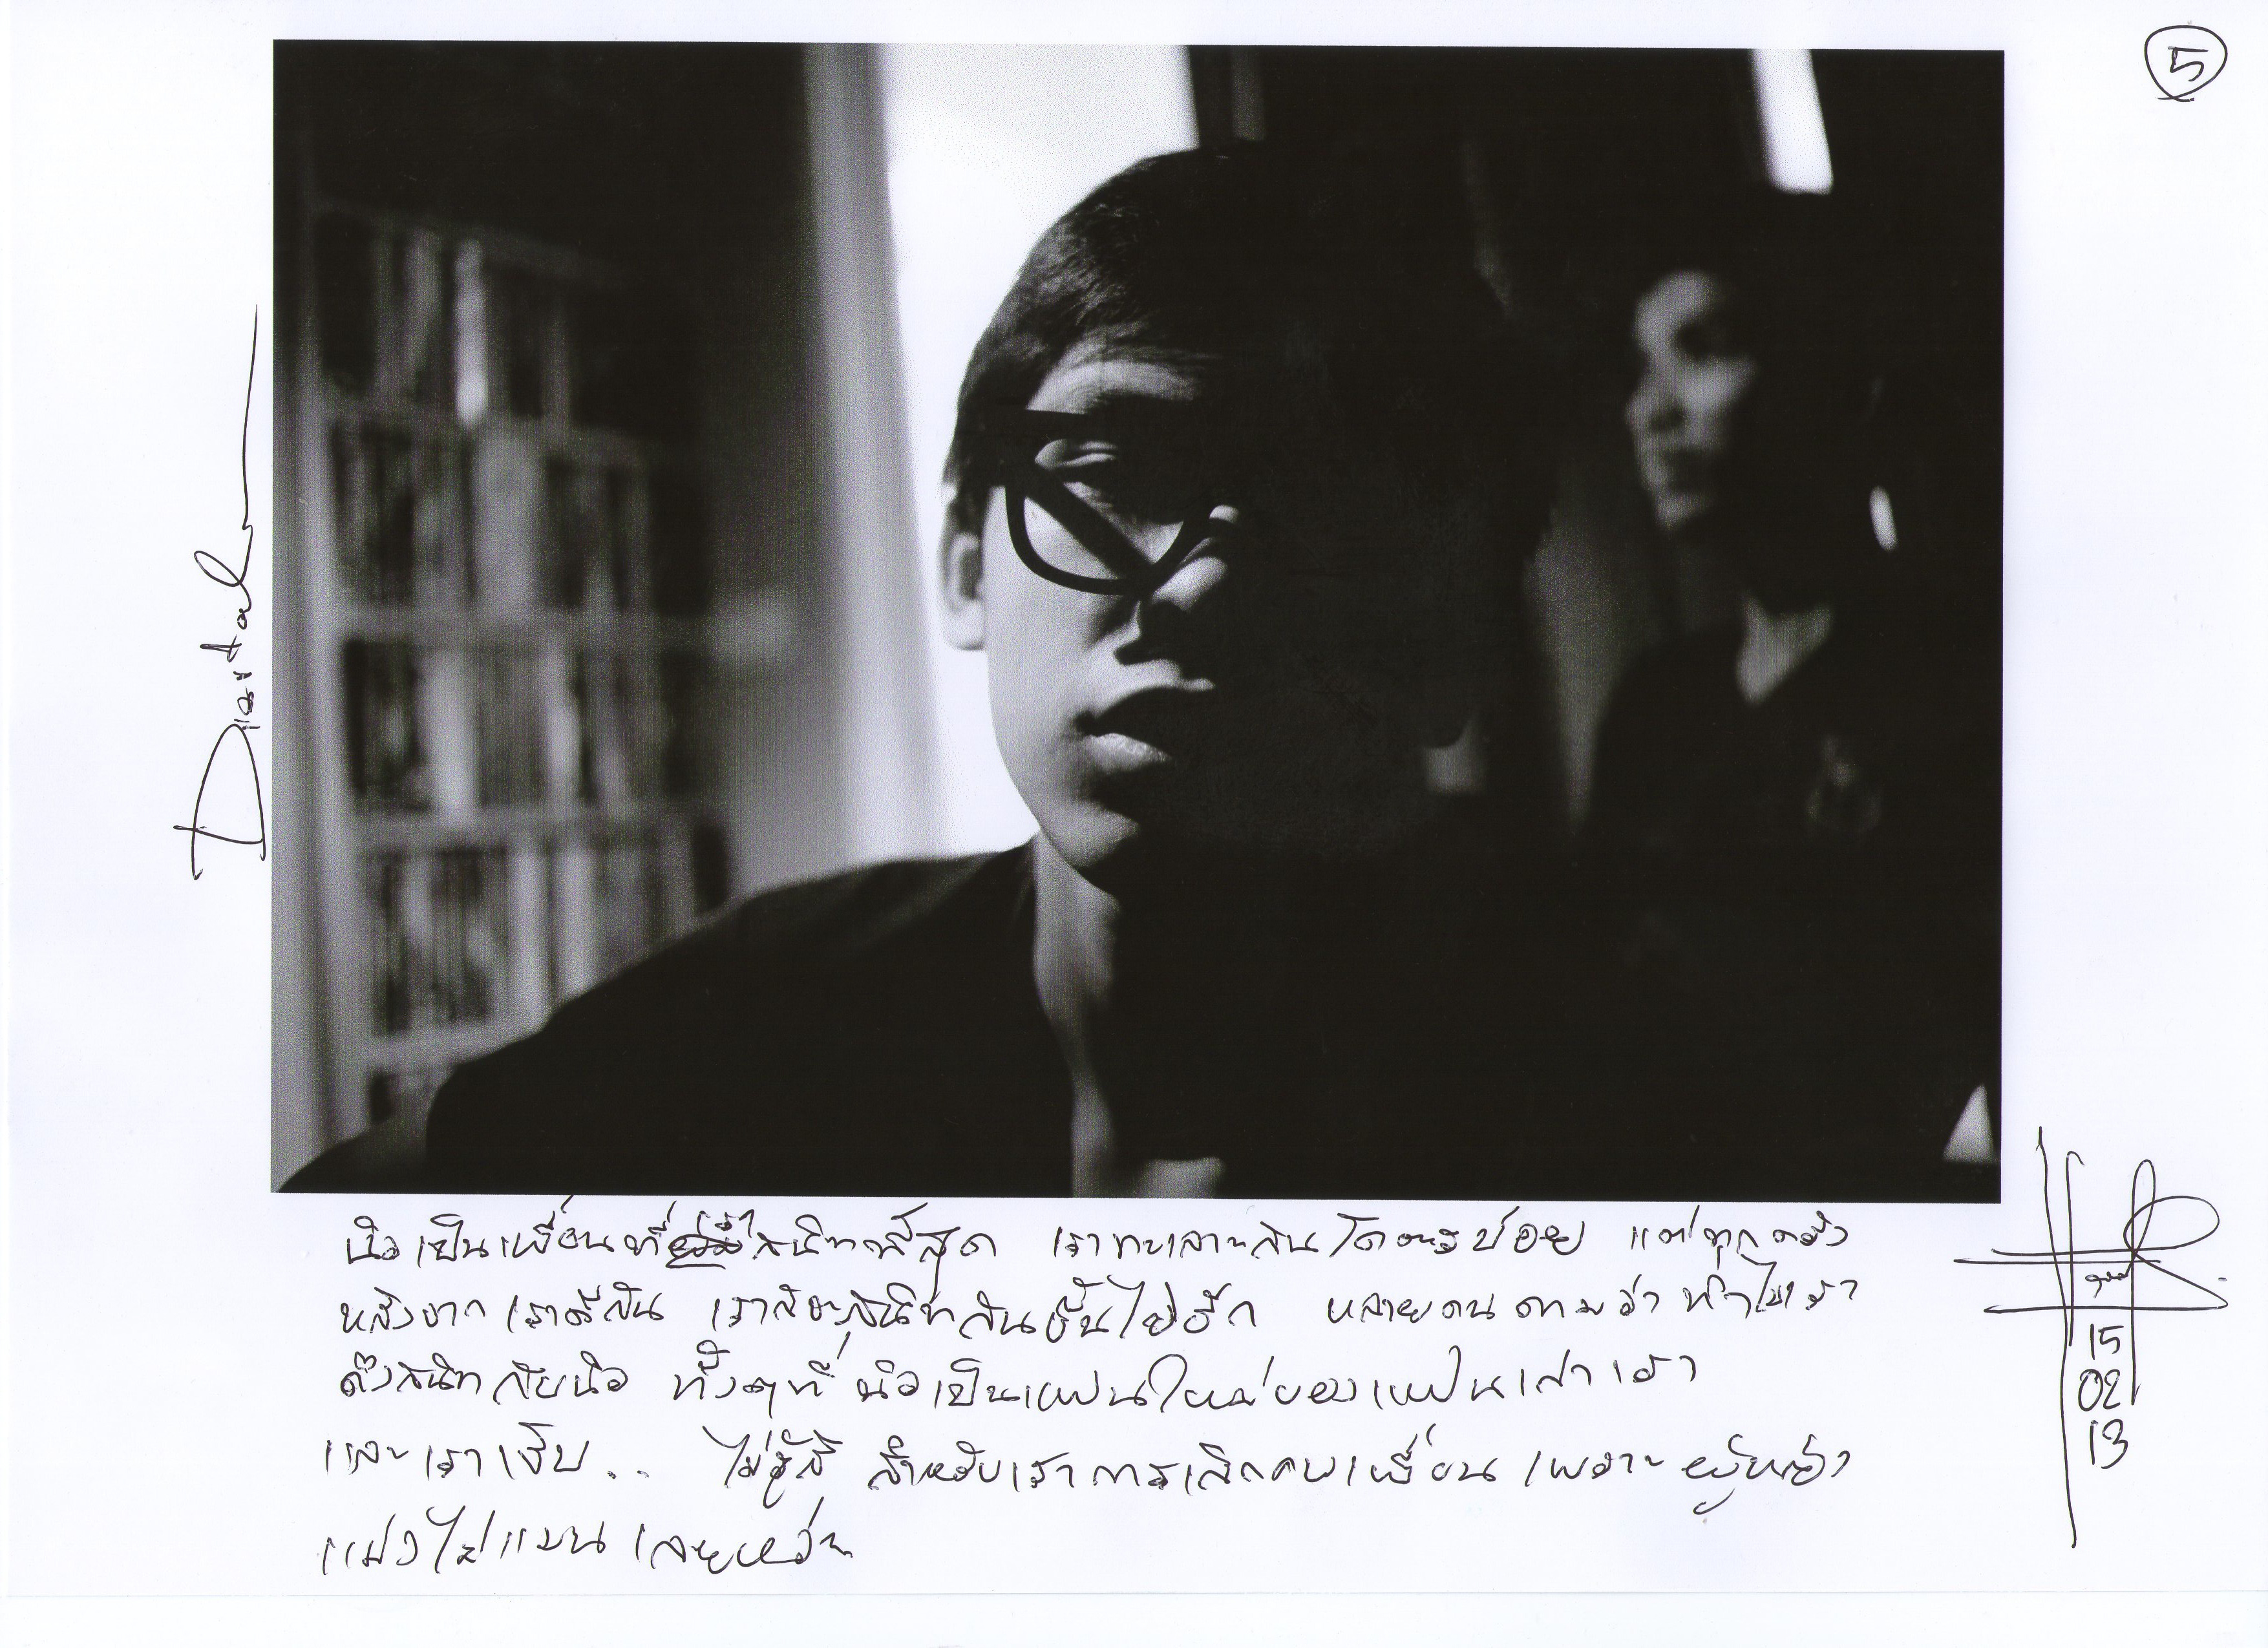 5
Digital
นิวเป็นเพื่อนที่สนิทที่สุด เราทะเลาะกันโคตรบ่อย แต่ทุกครั้ง
หลังจากเราตีกัน เราก็จะสนิทกันขึ้นไปอีก หลายคนถามว่าทำไมเรา
ถึงสนิทกับนิว ทั้งๆที่ นิวเป็นแฟนใหม่ของแฟนเก่าเรา
และเราเจ็บ.. ไม่รู้สิ สำหรับเราการเลิกคบเพื่อน เพราะผู้หญิง
แม่งไม่แมนเลยหว่ะ
15
02
13